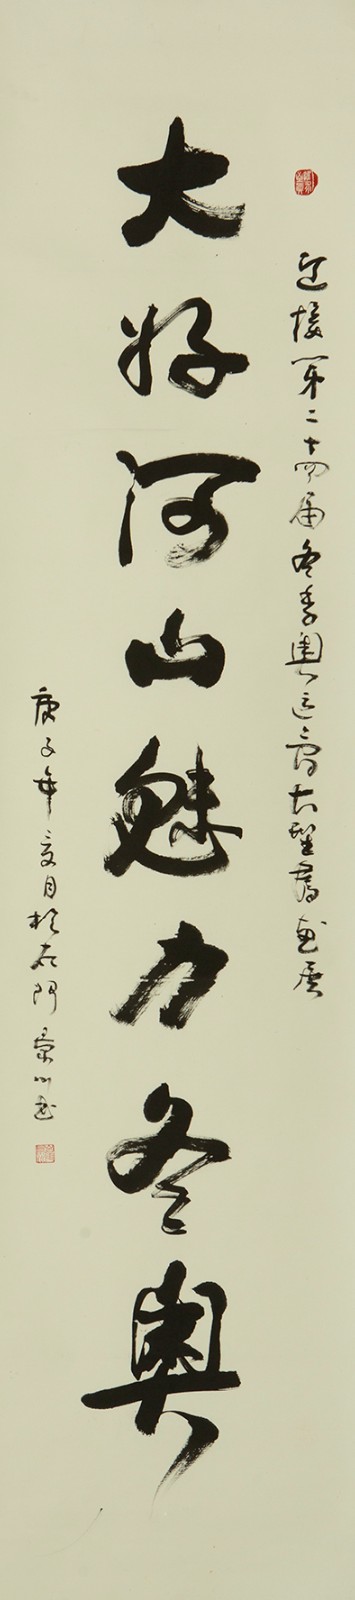 迎接第二十四届冬季奥运会大型书画展
大好河山魅力冬奥
庚子年夏月于石门景川书